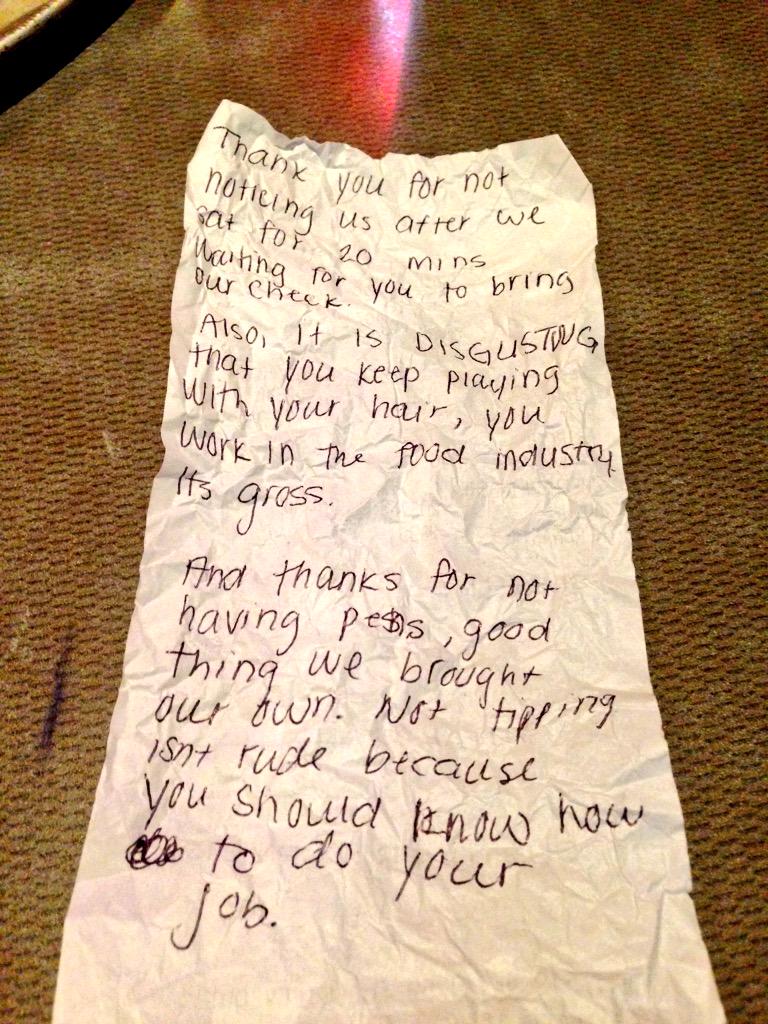 Thank you for not
noticing us after we
sat for 20 mins
waiting for you to bring
our check.
Also, it is DISGUSTING
that you keep playing
with your hair, you
work in the food industry
Its gross.
And thanks for not
having pens, good
thing we brought
our own. Not tipping
isnt rude because
you should know how
to do your
job.